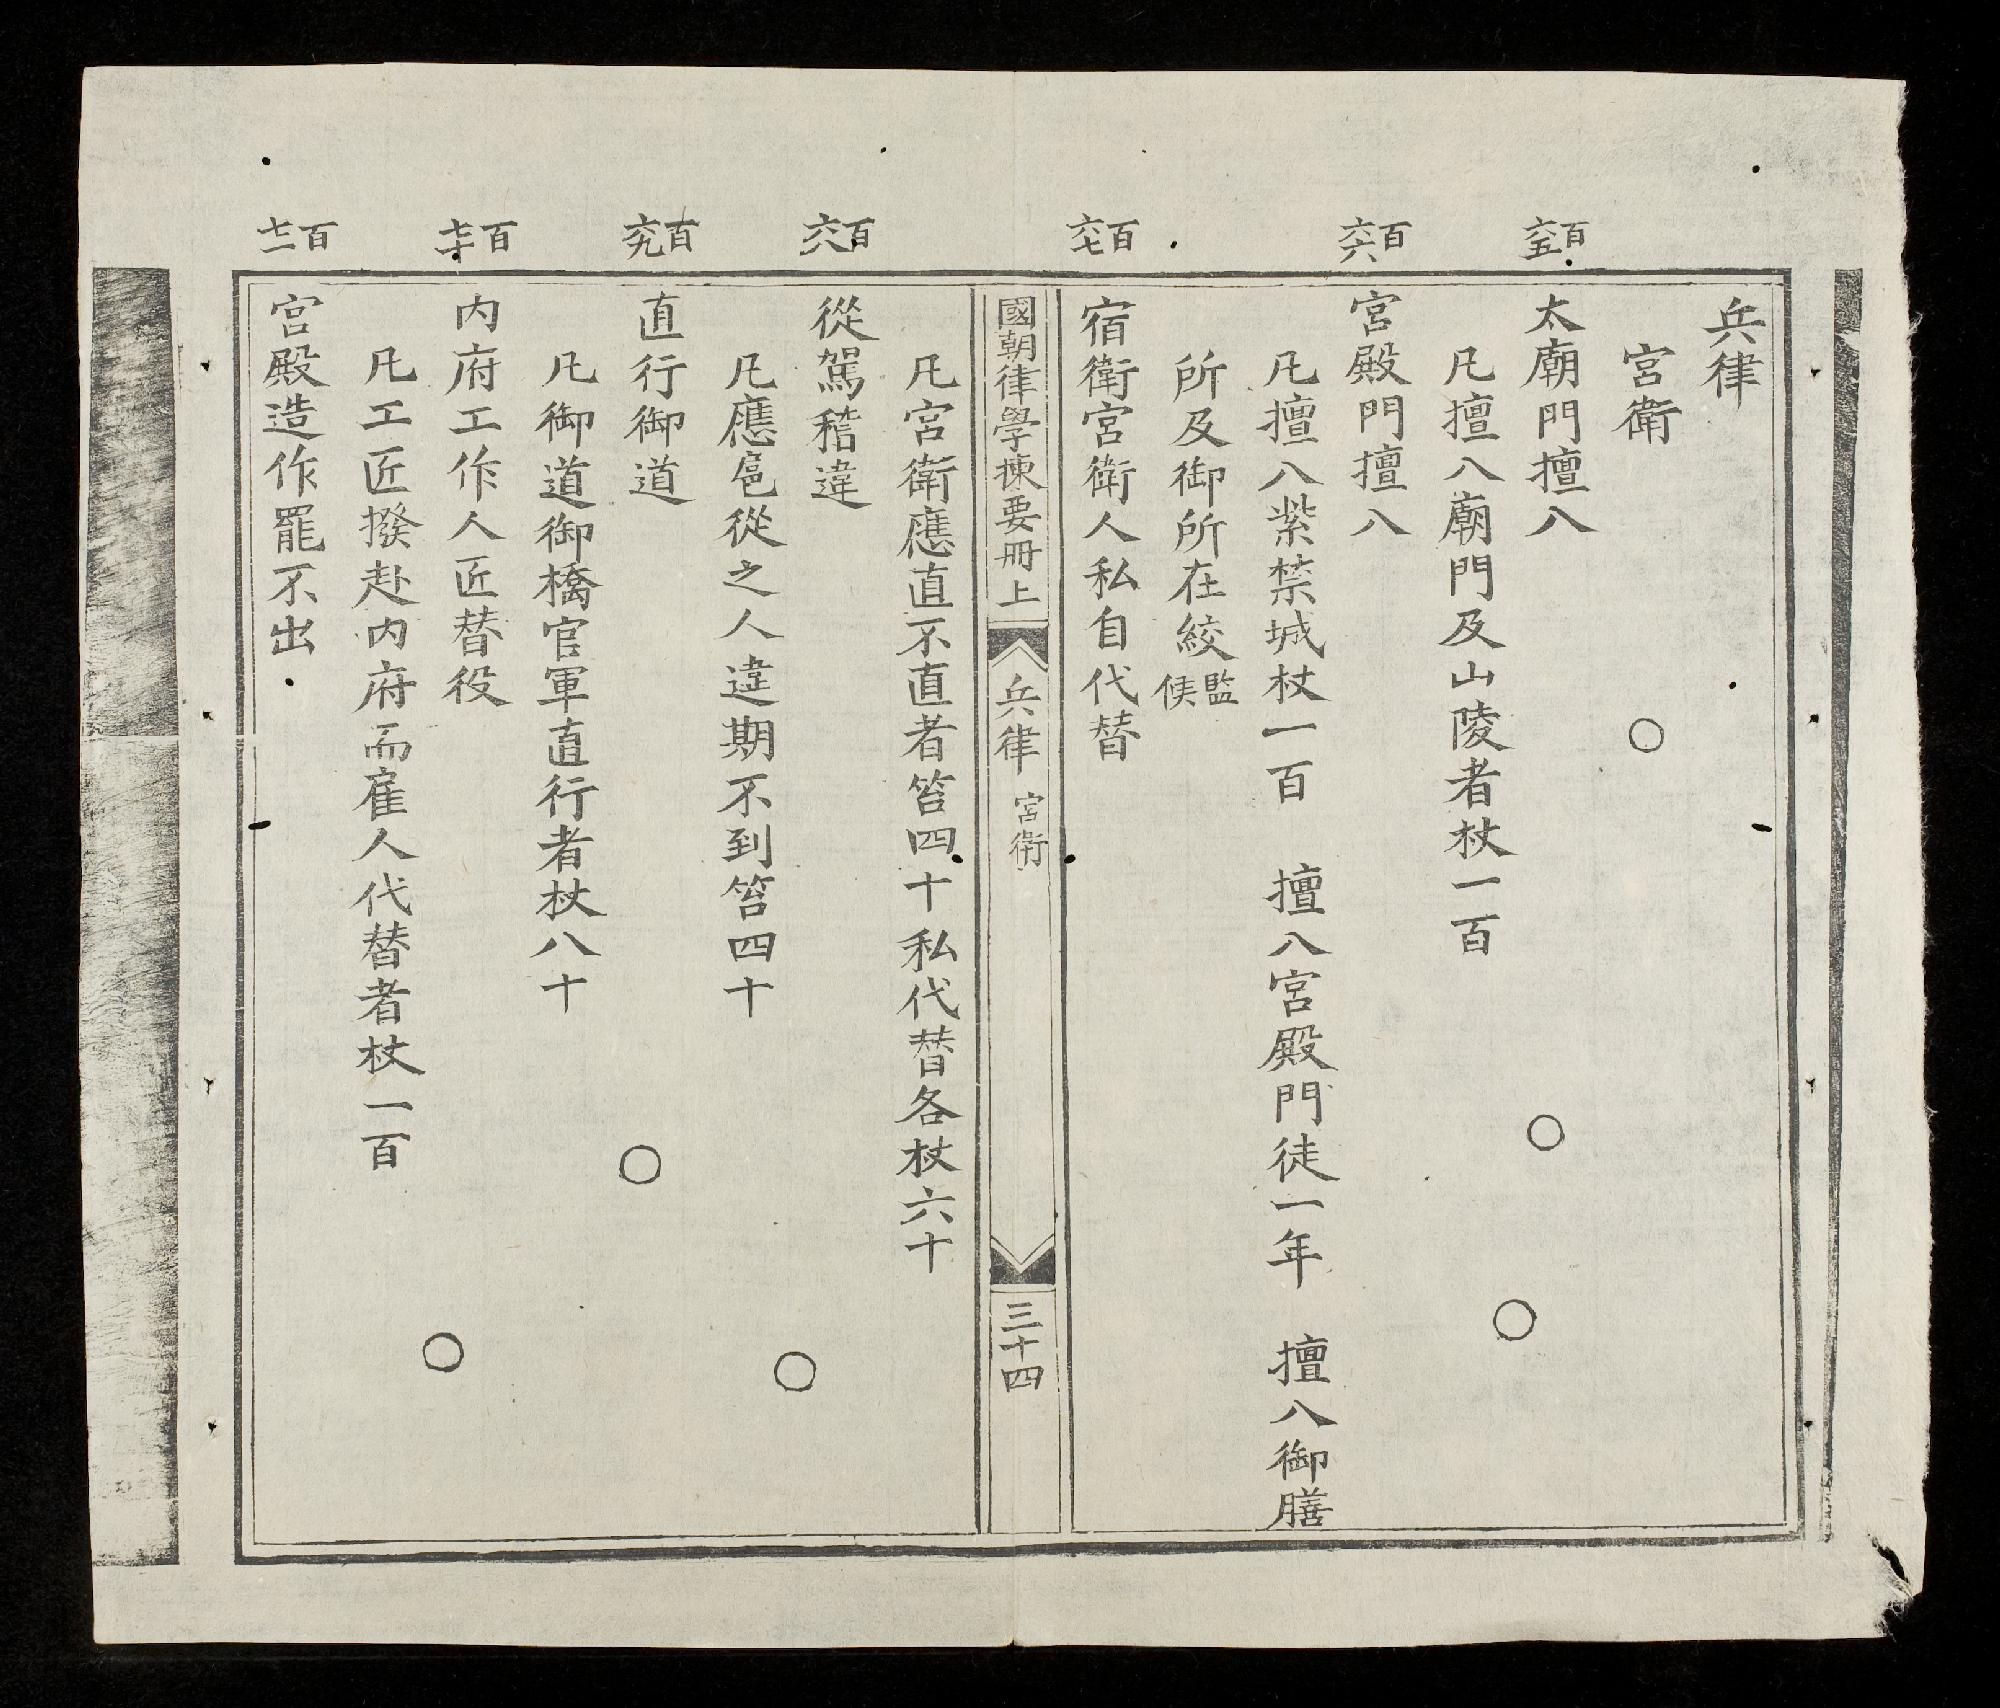 兵律
宮衛
百六五
太廟門擅入
凡擅入廟門及山陵者杖一百
百六六
宮殿門擅入
凡擅入紫禁城杖一百 擅入宮殿門徒一年 擅入御膳
所及御所在絞監候
百六七
宿衛宮衛人私自代替
國朝律學揀要冊上 兵律 宮衛 三十四
凡宮衛應直不直者笞四十私代替各杖六十
百六八
從駕稽違
凡應扈從之人違期不到笞四十
百六九
直行御道
凡御道御橋官軍直行者杖八十
百七十
内府工作人匠替役
凡工匠撥赴内府而雇人代替者杖一百
百七一
宮殿造作罷不出